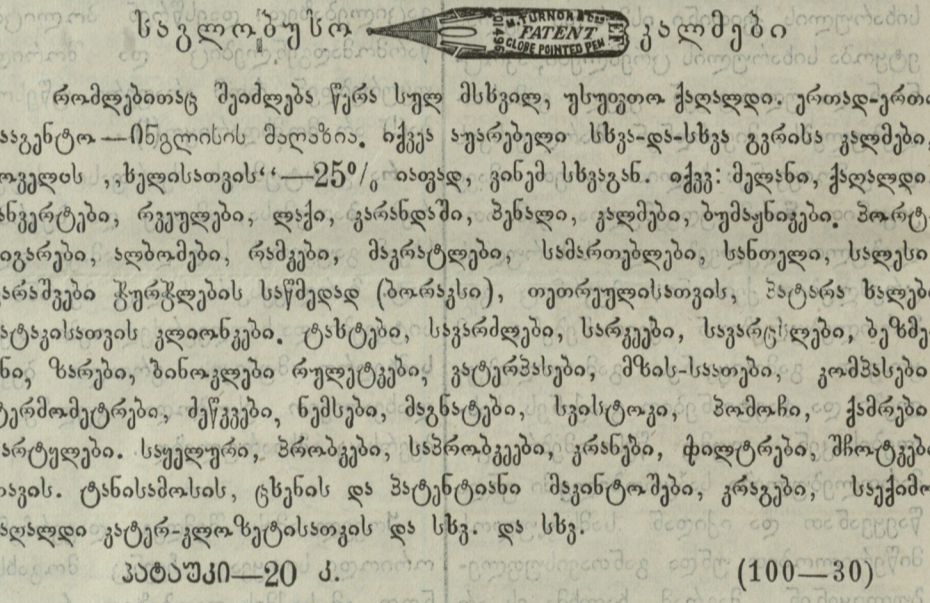 საგლობუსო M. TURNOR & Co's PATENT GLOBE POINTED PEN 01496 E.F. კალმები
რომლებითაც შეიძლება წერა სულ მსხვილ, უსუფთო ქაღალდი. ერთად-ერთი
სააგენტო—ინგლისის მაღაზია. იქვეა აუარებელი სხვა-და-სხვა გვრისა კალმები,
ოველის „ხელისათვის“—25% იაფად, ვინემ სხვაგან. იქვე: მელანი, ქაღალდი
ანვერტები, რვეულები, ლაქი, კარანდაში, პენალი, კალმები, ბუმაჟნიკები. პორტ-
იგარები, ალბომები, რამკები, მაკრატლები, სამართებლები, სანთელი, სალესი
არაშვები ჭურჭლების საწმედად (ბორაკსი), თეთრეულისათვის, პატარა ხალებ
ატაკისათვის კლიონკები. ტახტები, სავარძლები, სარკეები, სავარცხლები, ბეზმე-
ნი, ზარები, ბინოკლები რულეტკები, ვატერპასები, მზის-საათები, კომპასები
ტერმომეტრები, ძეწკვები, ნემსები, მაგნატები, სვისტოკი, პომოჩი, ქამრები
არტყლები. საყელური, პრობკები, საპრობკეები, კრანები, ფილტრები, შჩოტკები
თავის. ტანისამოსის, ცხენის და პატენტიანი მაკინტოშები, კრაგები, საექიმო
აღალდი კატერ-კლოზეტისათვის და სხვ. და სხვ.
პატაუკი—20 კ. (100—30)